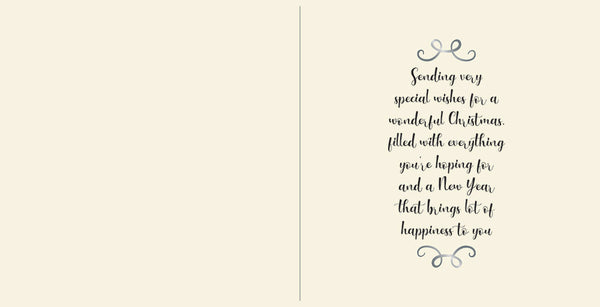 Sending very
special wishes for a
wonderful Christmas.
filled with everything
you're hoping for
and a New Year
that brings lot of
happiness to you